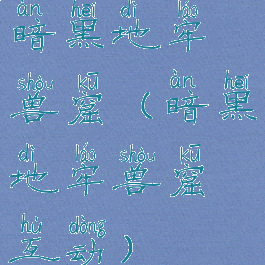 àn hēi dì láo
暗黑地牢
shòu kū àn hēi
兽窟(暗黑
dì láo shòu kū
地牢兽窟
hù dòng
互动)